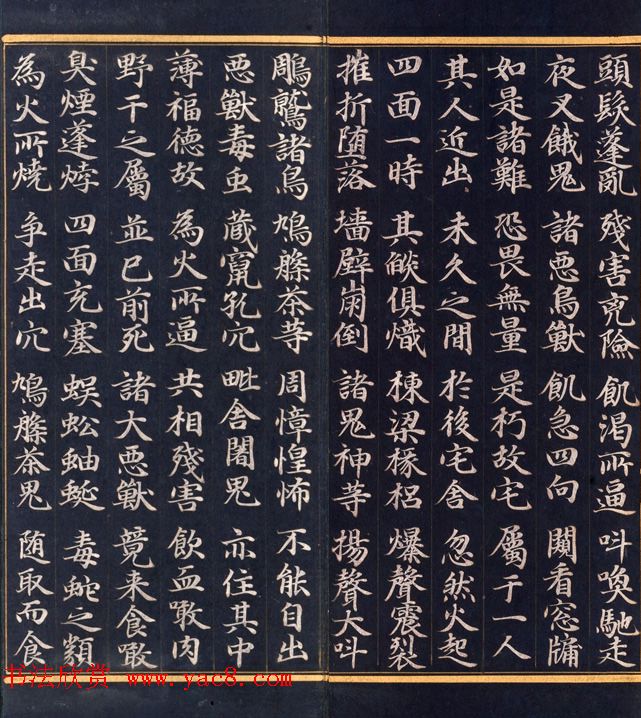 頭髮蓬亂 殘害兇險 飢渴所逼 叫喚馳走
夜叉餓鬼 諸惡鳥獸 飢急四向 闚看窓牖
如是諸難 恐畏無量 是朽故宅 屬于一人
其人近出 未久之間 於後宅舍 忽然火起
四面一時 其燄俱熾 棟梁椽梠 爆聲震裂
摧折墮落 墻壁崩倒 諸鬼神等 揚聲大叫
鵰鷲諸鳥 鳩槃茶等 周慞惶怖 不能自出
惡獸毒虫 藏竄孔穴 毗舍闍鬼 亦住其中
薄福德故 為火所逼 共相殘害 飲血噉肉
野干之屬 並已前死 諸大惡獸 競来食噉
臭煙蓬㶿 四面充塞 蜈蚣蚰蜒 毒蛇之類
為火所燒 争走出穴 鳩槃茶鬼 随取而食
书法欣赏 www.yac8.com